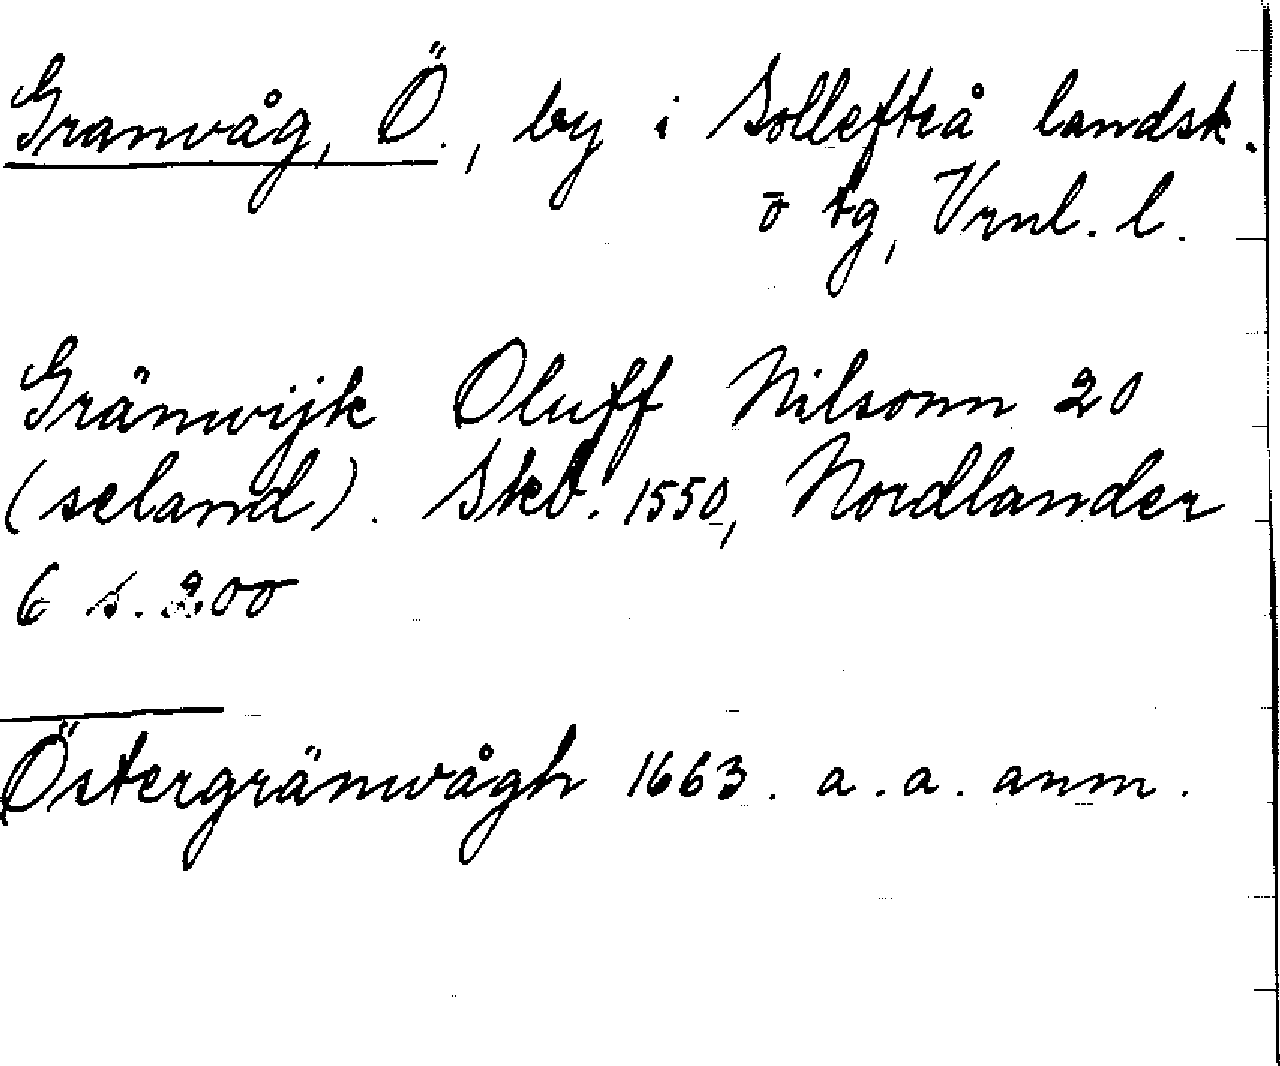 Granvåg, Ö., by i Sollefteå landsk.
o tg, Vrnl. l.
Gränwijk Oluff Nilsonn 20
(seland). Skb. 1550, Nordlander
6 s. 200
Östergränwågh 1663. a.a. anm.